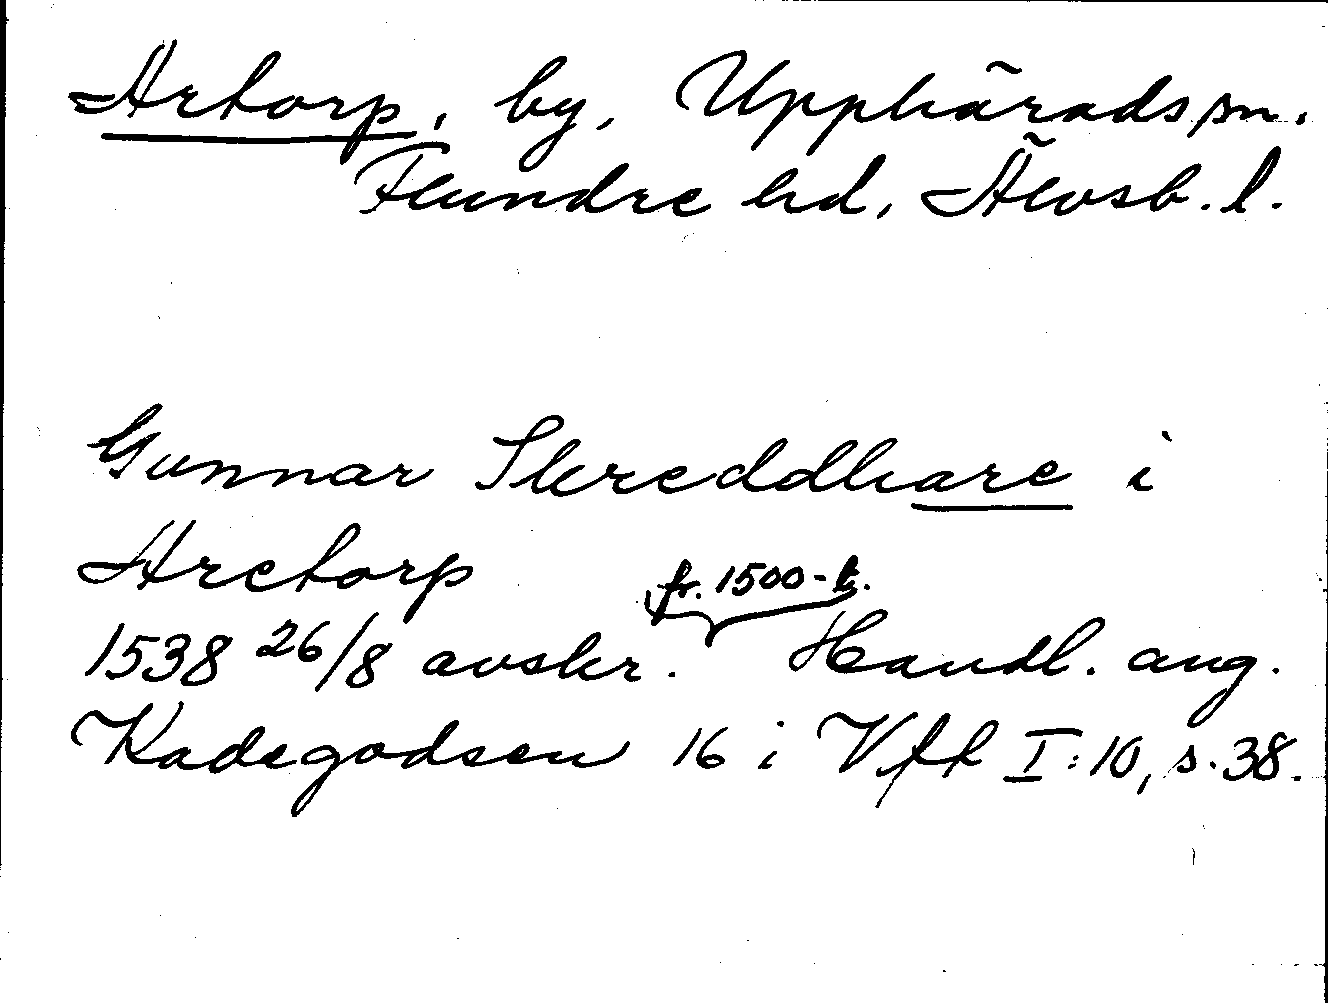 Artorp, by, Upphärads sn.
Flundre hd, Älvsb. l.
Gunnar Skreddhare i
Aretorp
fr. 1500-t.
1538 26/8 avskr. Handl. ang.
Kadegodsen 16 i Vfh I:10, s. 38.